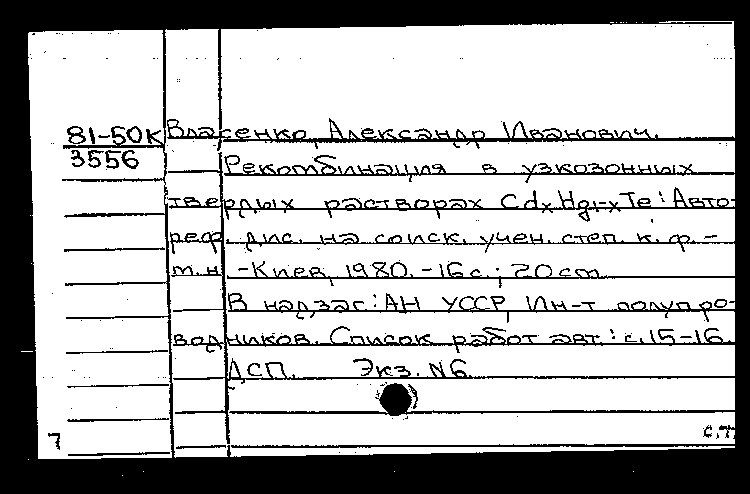 81-50К Власенко, Александр Иванович.
3556 Рекомбинация в узкозонных
твердых растворах CdxHg1-xTe: Авто-
реф. дис. на соиск. учен. степ. к. ф.-
м.н. -Киев, 1980. -16 с.; 20 cm
В надзаг.: АН УССР, Ин-т полупро-
водников. Список работ авт.: с. 15-16.
ДСП. Экз. №6
7